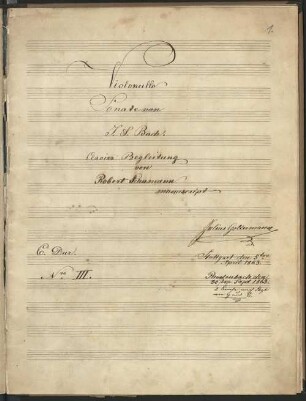 Violoncello
Sonate von
J. S. Bach
Clavier Begleitung
von
Robert Schumann
manuscript
Julius Goltermann
Stuttgart den 5ten
April 1863.
C Dur
No III.
20 Sept 1863.